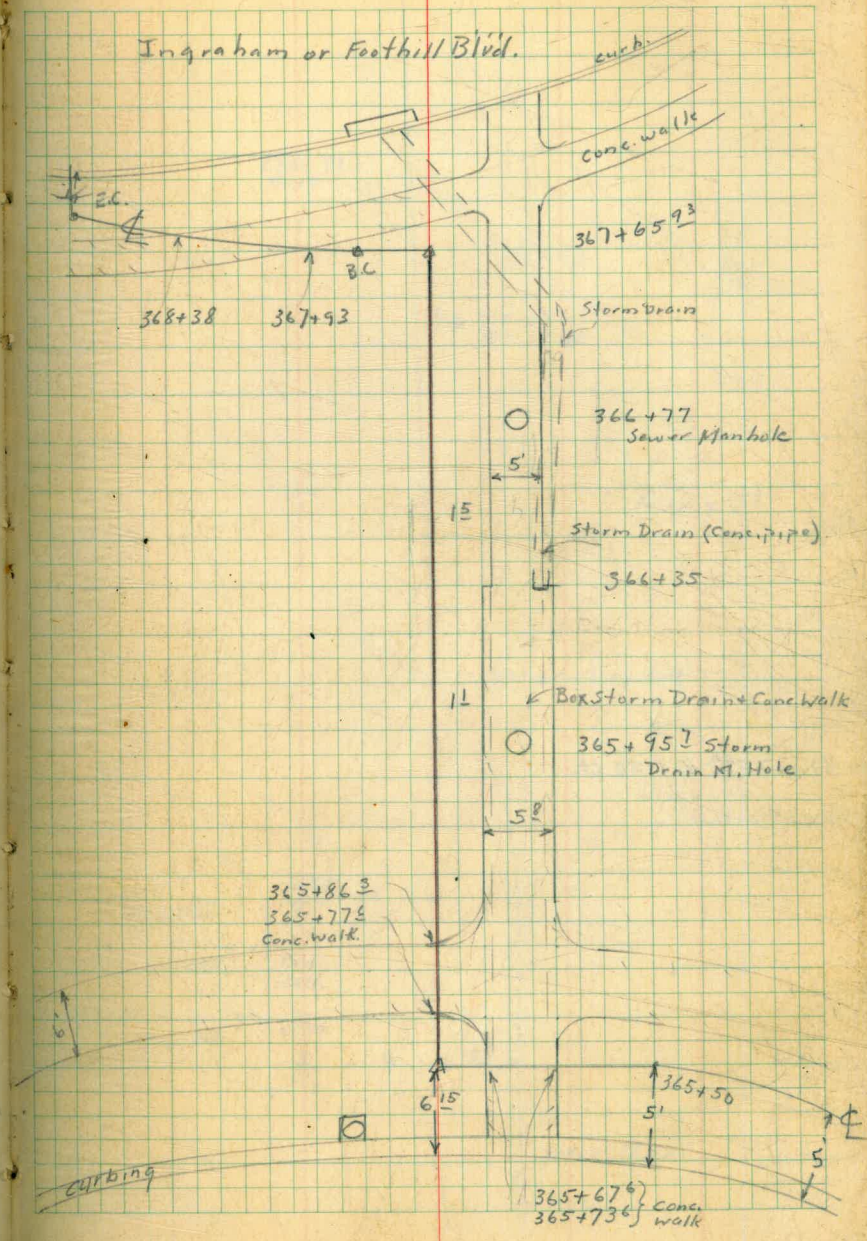 Ingraham or Foothill Blvd.
curb.
Conc. walk
E.C.
℄
B.C
367+65 93
368+38
367+93
Storm Drain
366+77
Sewer Manhole
5'
1 5
Storm Drain (Conc. pipe)
366+35
1 1
Box Storm Drain + Conc. Walk
365+95 7 Storm
Drain M. Hole
5 8
365+86 3
365+77 6
Conc. walk.
6'
365+50
6 15
5'
℄
5'
curbing
365+67 6 } Conc.
365+73 6 } walk